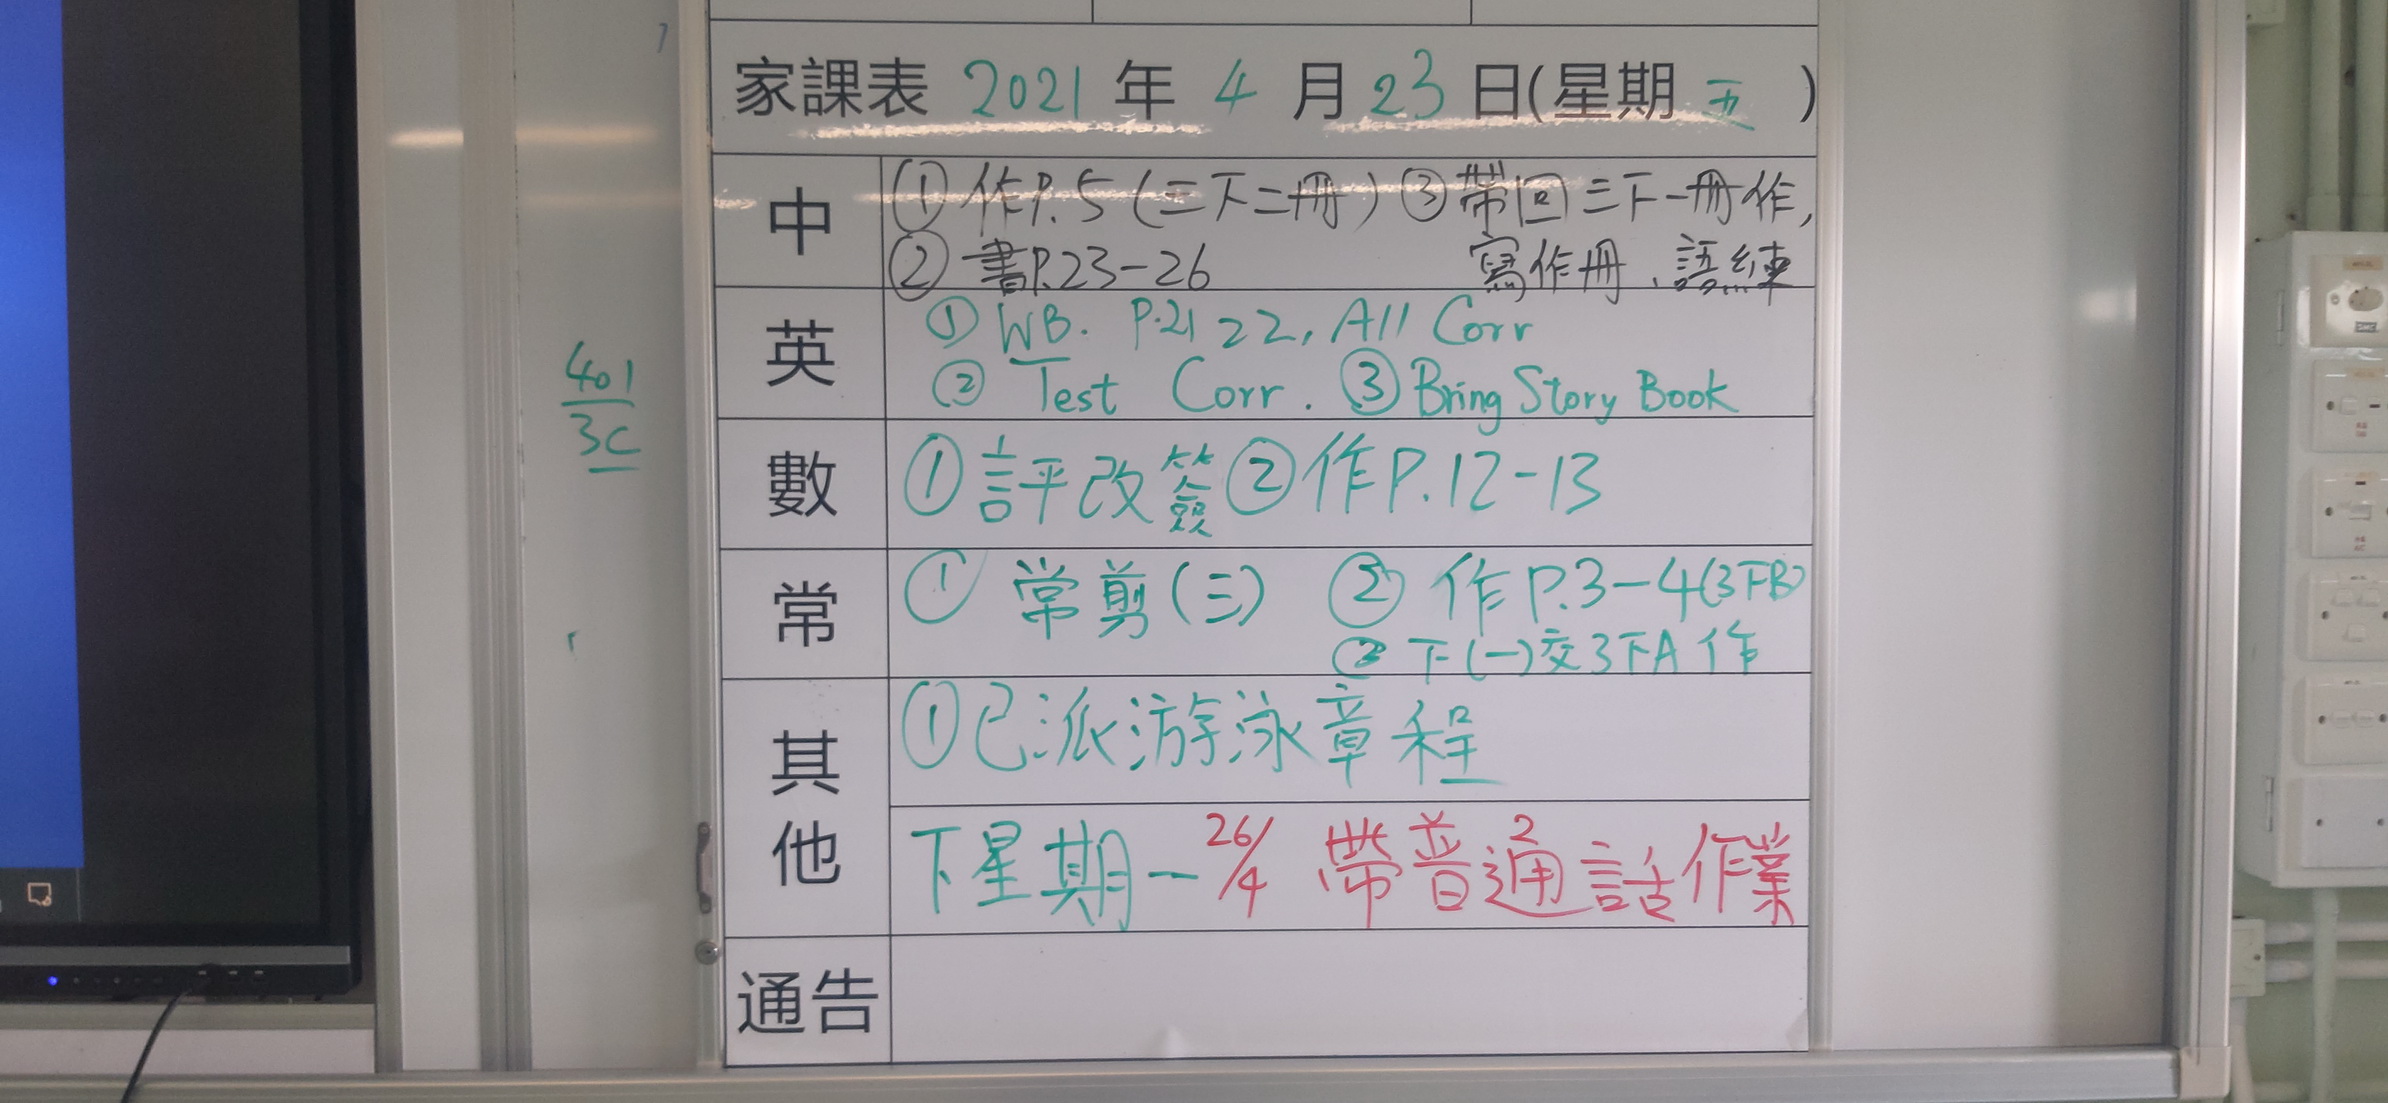 家課表 2021 年 4 月 23 日(星期 五 )
中
① 作P.5 (三下二冊) ③ 帶回三下一冊作,
② 書P.23-26 寫作冊、語練
英
① WB. P.21 22, All Corr
② Test Corr. ③ Bring Story Book
401
3C
數
① 評改簽 ② 作P.12-13
常
① 常剪(三) ② 作P.3-4(3下B)
下(一)交3下A作
其他
① 已派游泳章程
下星期一 26/4 帶普通話作業
2
通告